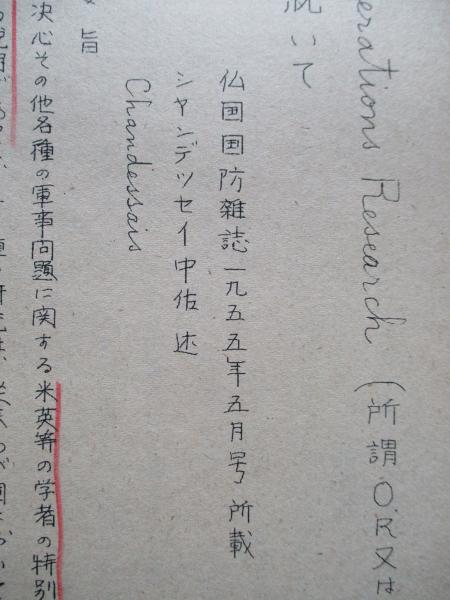 erations Research (所謂O.R又は
就いて
仏国国防雑誌一九五五年五月号所載
シャンデッセイ中佐 述
Chandessais
旨
決心その他各種の軍事問題に関する米英等の学者の特別